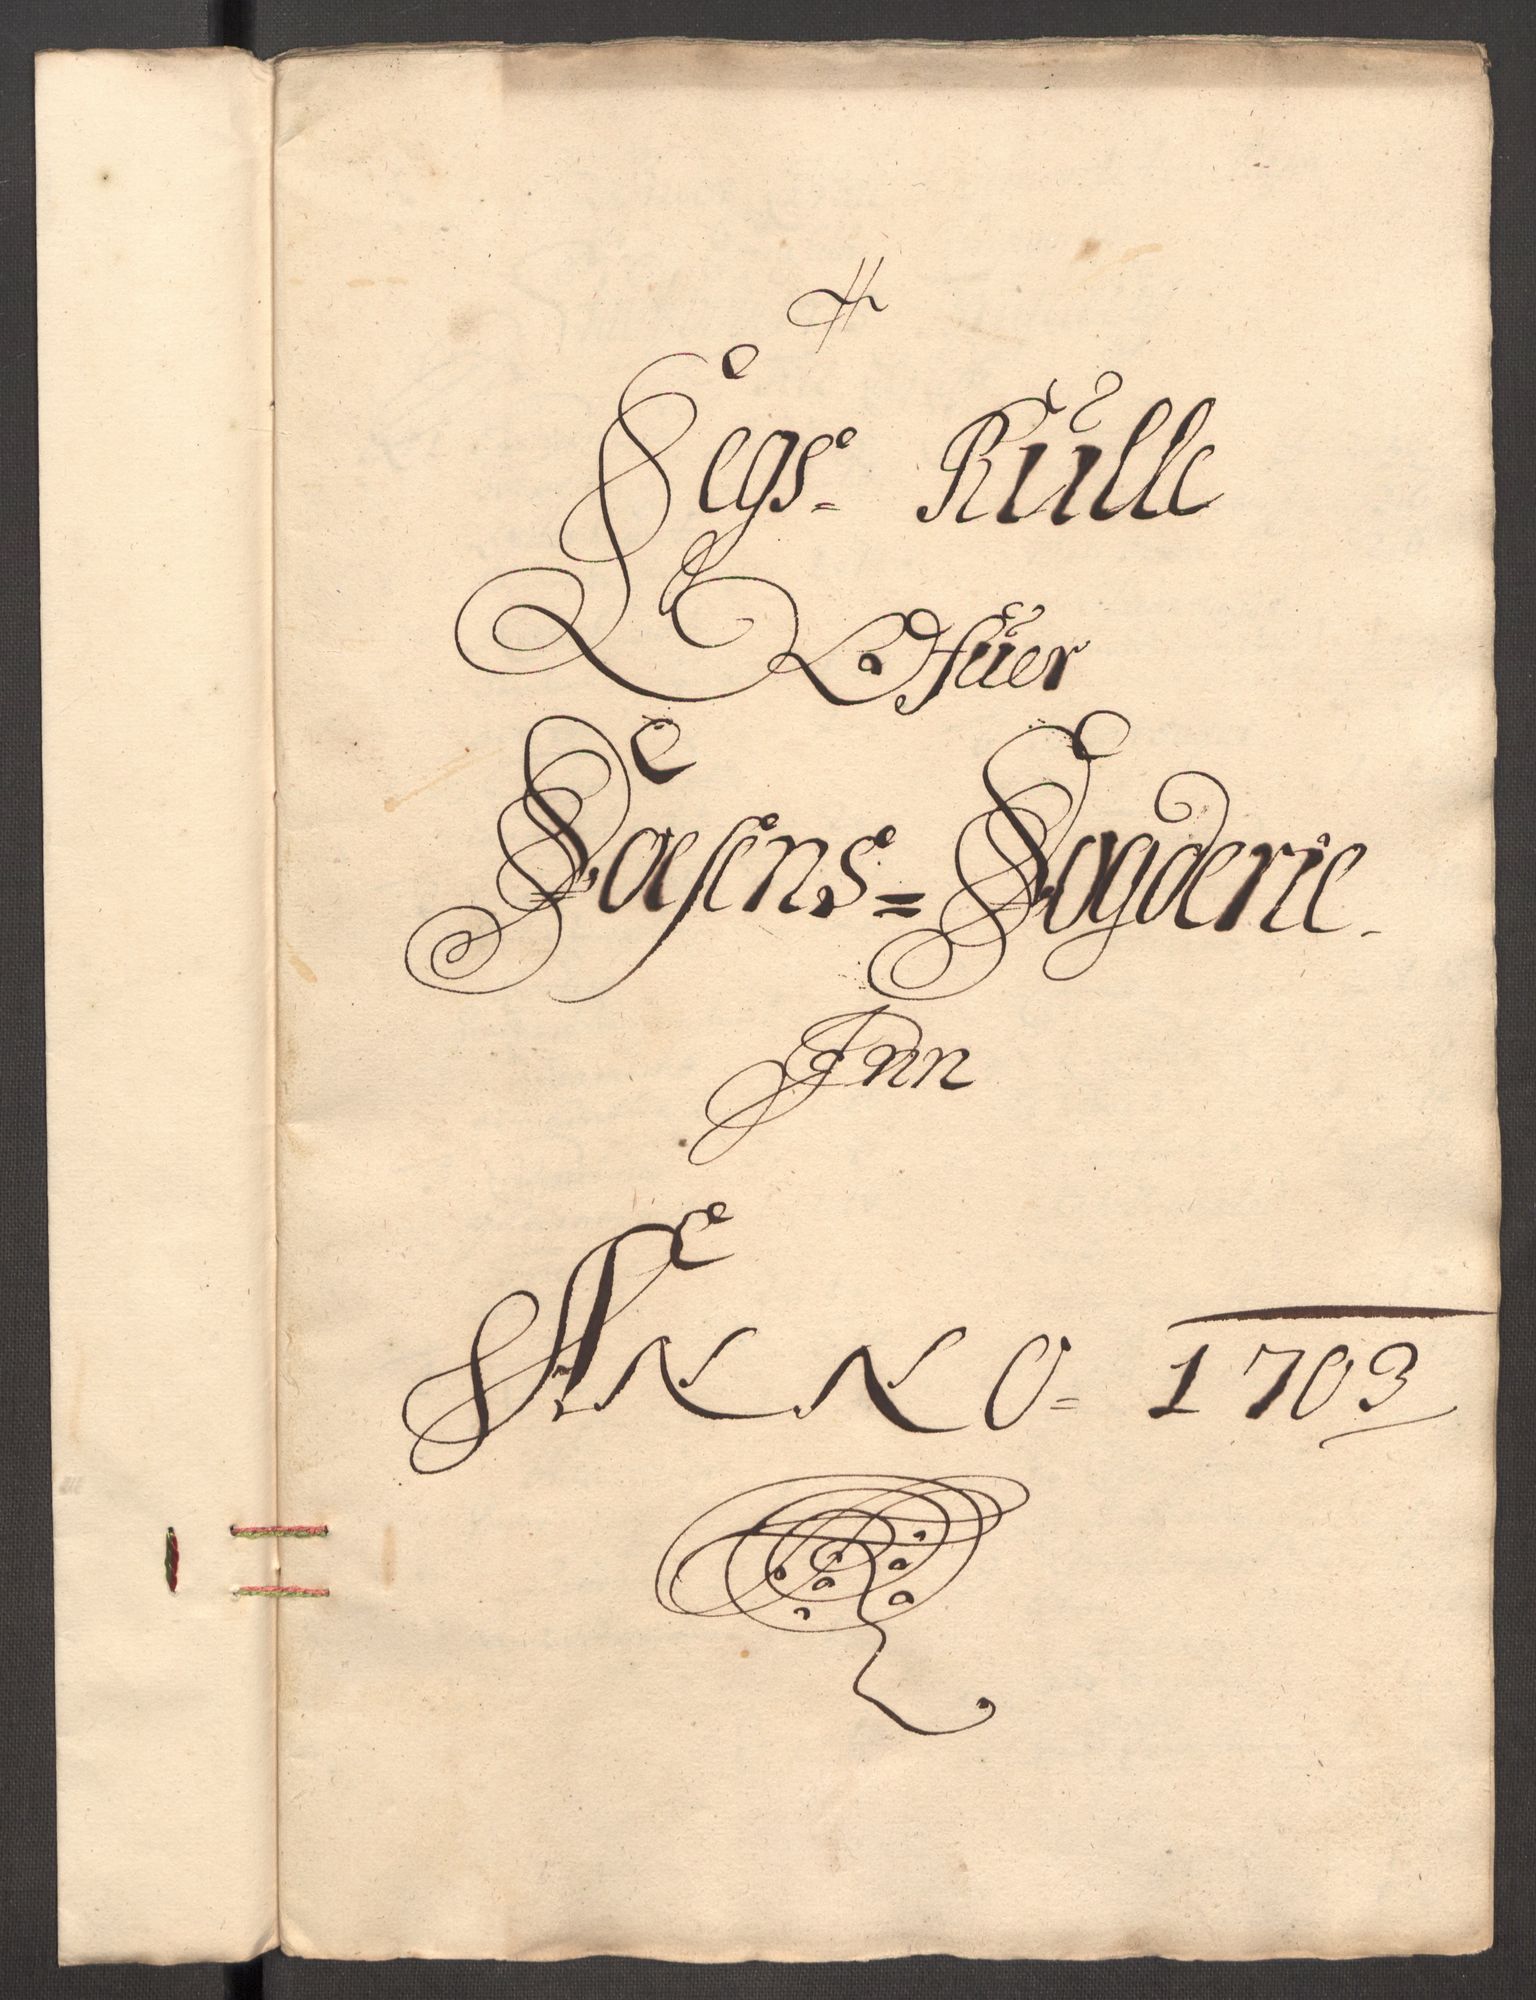 Legs= Rulle
Ofuer
Fosens= Fogderie.
Inn
ANNO= 1703